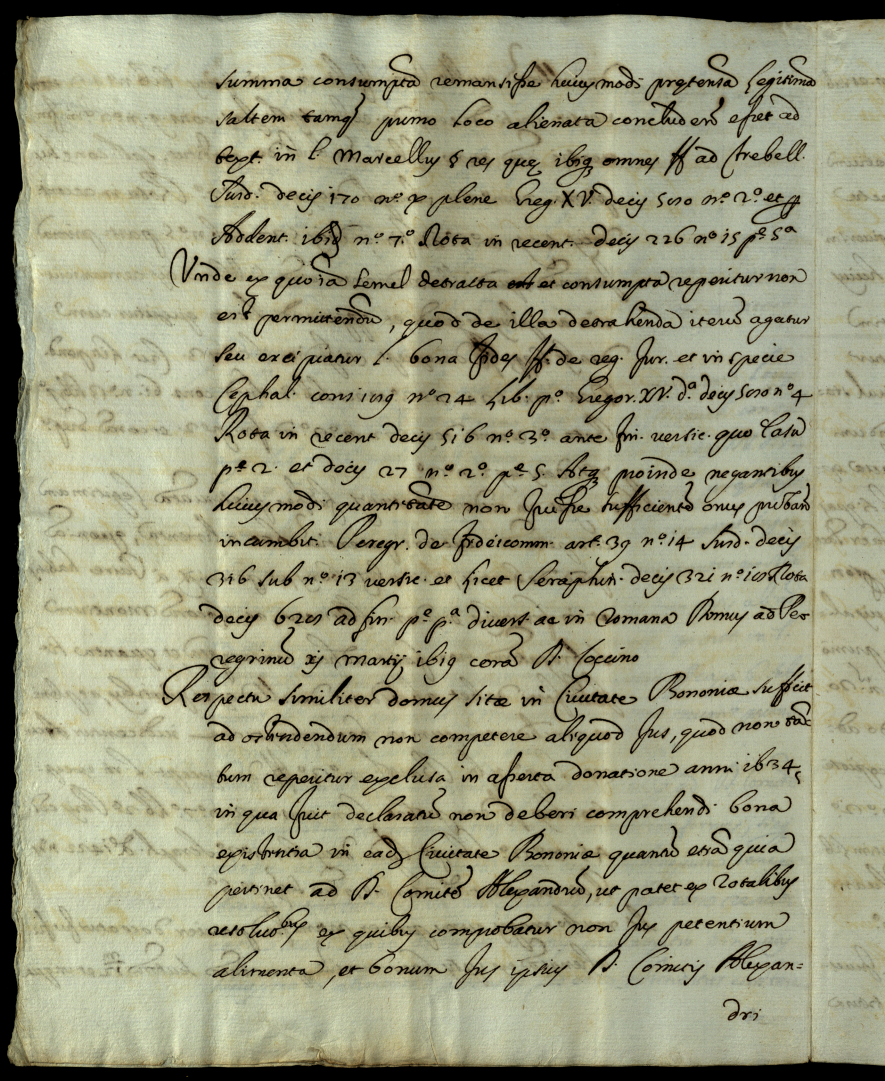 summa consumpta remansisse huiusmodi prętensa legitima
saltem tamq̃ primo loco alienata concludere esset ad
text. in l. Marcellus § res quę ibiq; omnes ff ad Trebell.
Surd. decis 170 n.º x plene Greg. XV. decis 5010 n.º 2.º et
Addent. ibid n.º 7.º Rota in recent. decis 226 n.º 15 p.e 5.a
Vnde ex quo ia semel detracta et consumpta reperitur non
est permittendũ, quod de illa detrahenda iterũ agatur
seu excipiatur l. bona fides ff. de reg. Jur. et in specie
Cephal. cons n.º 24 lib. p.º Gregor. XV. d.a decis n.º 4
Rota in recent decis 516 n.º 3.º ante fin. versic. quo casu
p.e 2. et decis 27 n.º 2.º p.e 5. Atq; proinde negantibus
huiusmodi quantitate non fuisse sufficientẽ onus probandi
incumbit Peregr. de fideicomm. art. 39 n.º 14 Surd. decis
316 sub n.º 13 versic. et licet Seraphin. decis 321 n.º Rota
decis ad fin. p.e p.a divers. ac in Romana Domus ad Pe-
regrinũ xj martij 1619 corã D. Coccino
Respectu similiter domus sitæ in Ciuitate Bononiæ sufficit
ad ostendendum non competere aliquod Jus, quod non tan-
tum reperitur exclusa in asserta donatione anni 1634,
in qua fuit declaratũ non deberi comprehendi bona
existentia in ead. Ciuitate Bononiæ quantũ etiã quia
pertinet ad D. Comitẽ Alexandrũ, ut patet ex rotalibus
resolut.bus ex quibus comprobatur non Jus petentium
alimenta, et bonum Jus ipsius D. Comitis Alexan=
dri